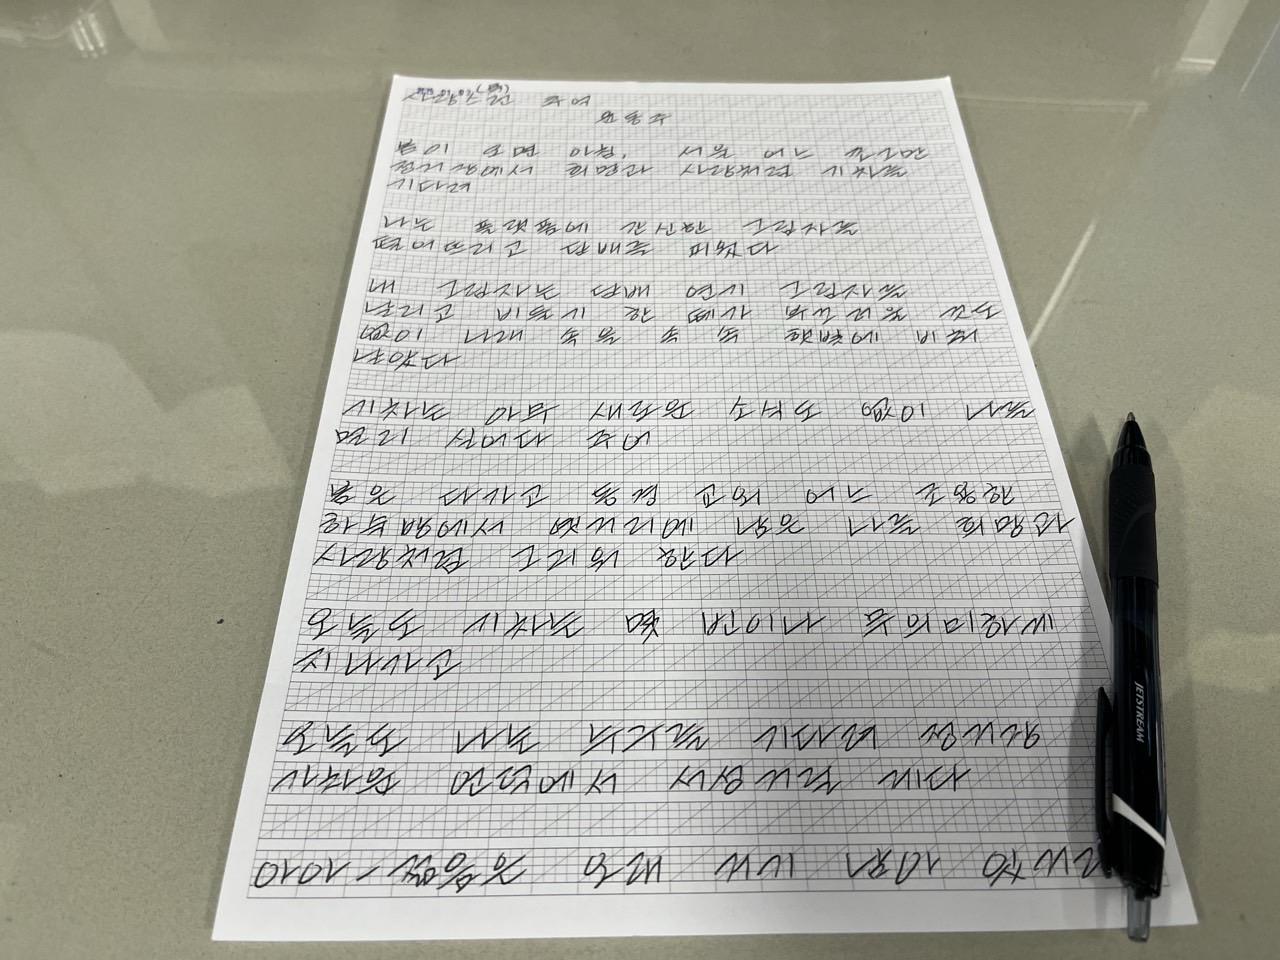 사랑스런 추억
윤동주
봄이 오던 아침, 서울 어느 쪼그만
정거장에서 희망과 사랑처럼 기차를
기다려
나는 플랫폼에 간신한 그림자를
떨어뜨리고 담배를 피웠다
내 그림자는 담배 연기 그림자를
날리고 비둘기 한 떼가 부끄러울 것도
없이 나래 속을 속 속 햇빛에 비춰
날았다
기차는 아무 새로운 소식도 없이 나를
멀리 실어다 주어
봄은 다 가고 동경 교외 어느 조용한
하숙방에서 옛거리에 남은 나를 희망과
사랑처럼 그리워 한다
오늘도 기차는 몇 번이나 무의미하게
지나가고
오늘도 나는 누구를 기다려 정거장
가차운 언덕에서 서성거릴 게다
아아 - 젊음은 오래 거기 남아
JETSTREAM